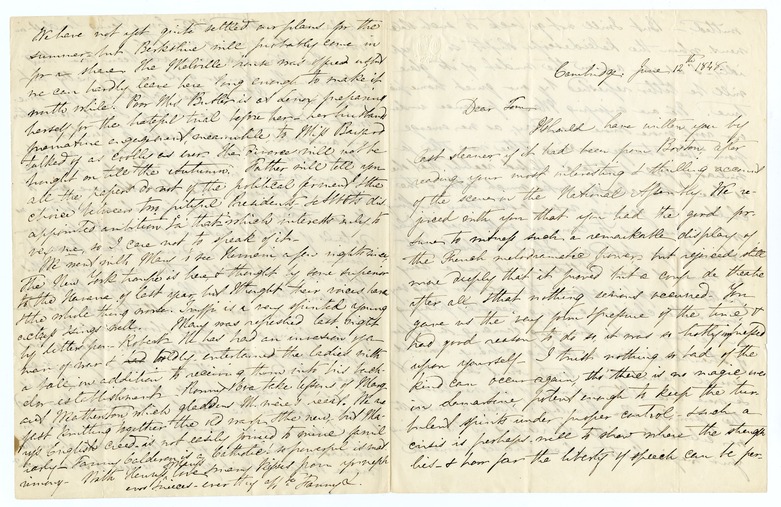 Cambridge June 12th 1848.
Dear Tom,
I should have written you by
last steamer if it had been from Boston, after
reading your most interesting & thrilling account
of the scene in the National Assembly. We re-
joiced with you that you had the good for-
tune to witness such a remarkable display of
the French melodramatic power, but rejoiced still
more deeply that it proved but a coup de theatre
after all & that nothing serious occurred. You
gave us the very form & pressure of the time &
had good reason to do so it was so hotly impressed
upon yourself. I trust nothing so bad of the
kind can occur again, tho' there is no magic we
in Lamartine potent enough to keep the tur-
bulent spirits under proper control – such a
crisis is perhaps well to show where the strength
lies – & how far the liberty of speech can be per-
We have not yet quite settled our plans for the
summer – but Berkshire will probably come in
for a share. The Melville house was spoken of &
we can hardly leave here long enough to make it
worth while. Poor Mrs Butler is at Lenox preparing
herself for the hateful trial before her – her husband's
premature engagement, meanwhile to Miss
talked of as coolly as ever. The divorce will not be
brought on till the autumn. Father will tell you
all the papers do not of the political ferment & the
choice between two pitiful presidents –
appointed ambition in that which interests miles to
me, so I care not to speak of it –
We went with Mary & see Ernani a few nights since
The New York troupe is here & thought by some superior
to the Havana of last year, but I thought their voices
& the whole thing worn. Truffi is a very spirited young
actress & sings well. Mary was refreshed last night
by letters from Robert. M. has had an invasion of a
man of war & had to entertained the ladies with
a ball in addition to receiving them into his bach-
elor establishment. Ronny & Eva take lessons of Marg.
and Mathewson which gladdens M. when I read. He is
fast knitting together the old map & the new, but Ma-
ry's English creed is not easily joined to mine famil-
iarly – Fanny Calderon is a Catholic & proceful is not
rimony – With Henry's love & many kisses from yr neph
and nieces – ever thy affte Fanny L.